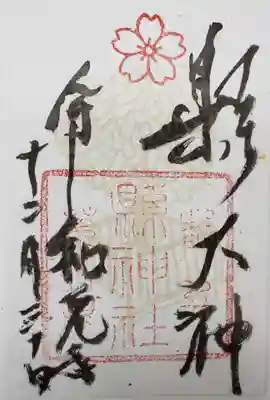 縣大神
縣神社
令和元年
十二月三十日